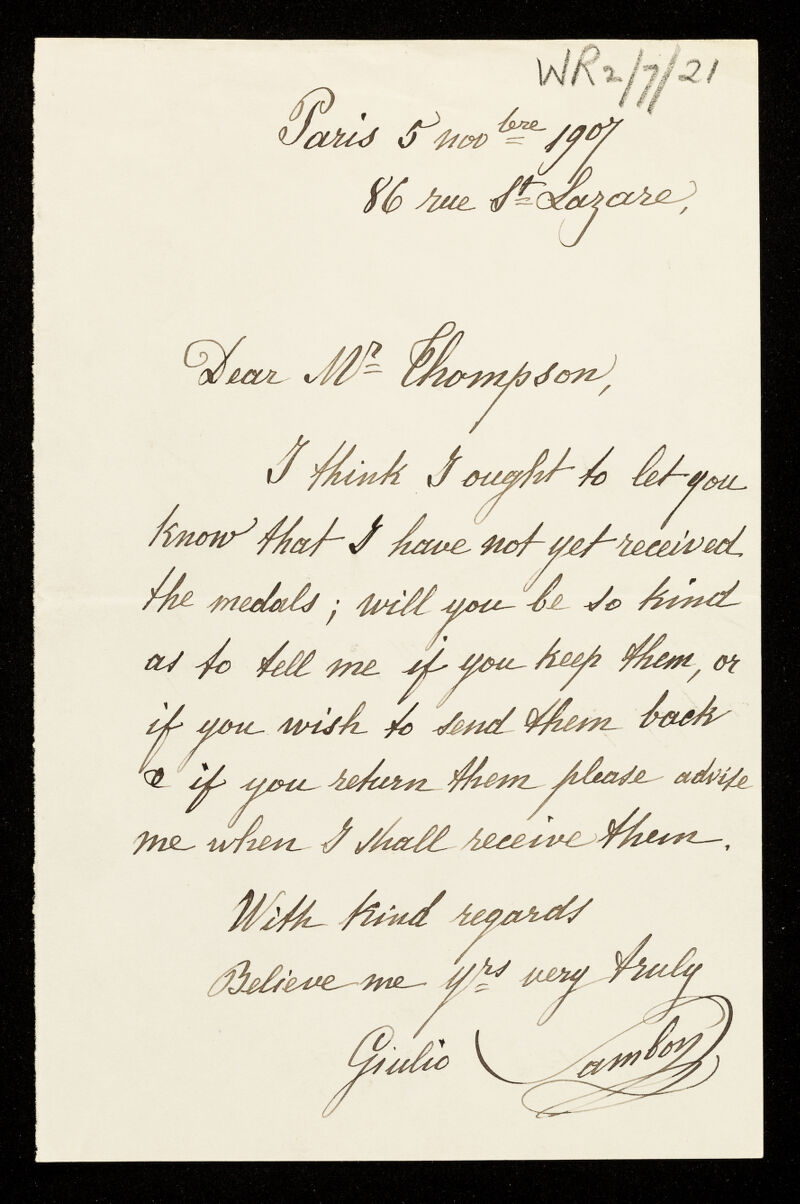 WR2/7/21
Paris 5 novbre 1907
86 rue St Lazare,
Dear Mr Thompson,
I think I ought to let you
know that I have not yet received
the medals; will you be so kind
as to tell me if you keep them, or
if you wish to send them back
& if you return them please advise
me when I shall receive them.
With kind regards
Believe me yrs very truly
Giulio Sambon